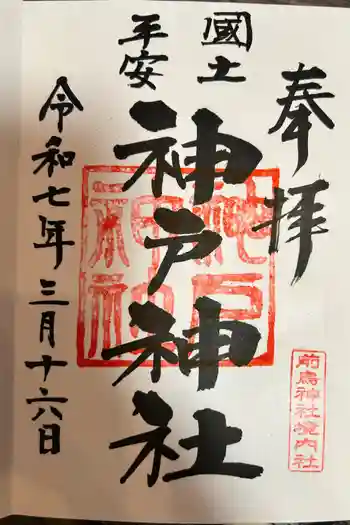 奉拝
國土
平安
神戸神社
神戸神社
前鳥神社境内社
令和七年三月十六日